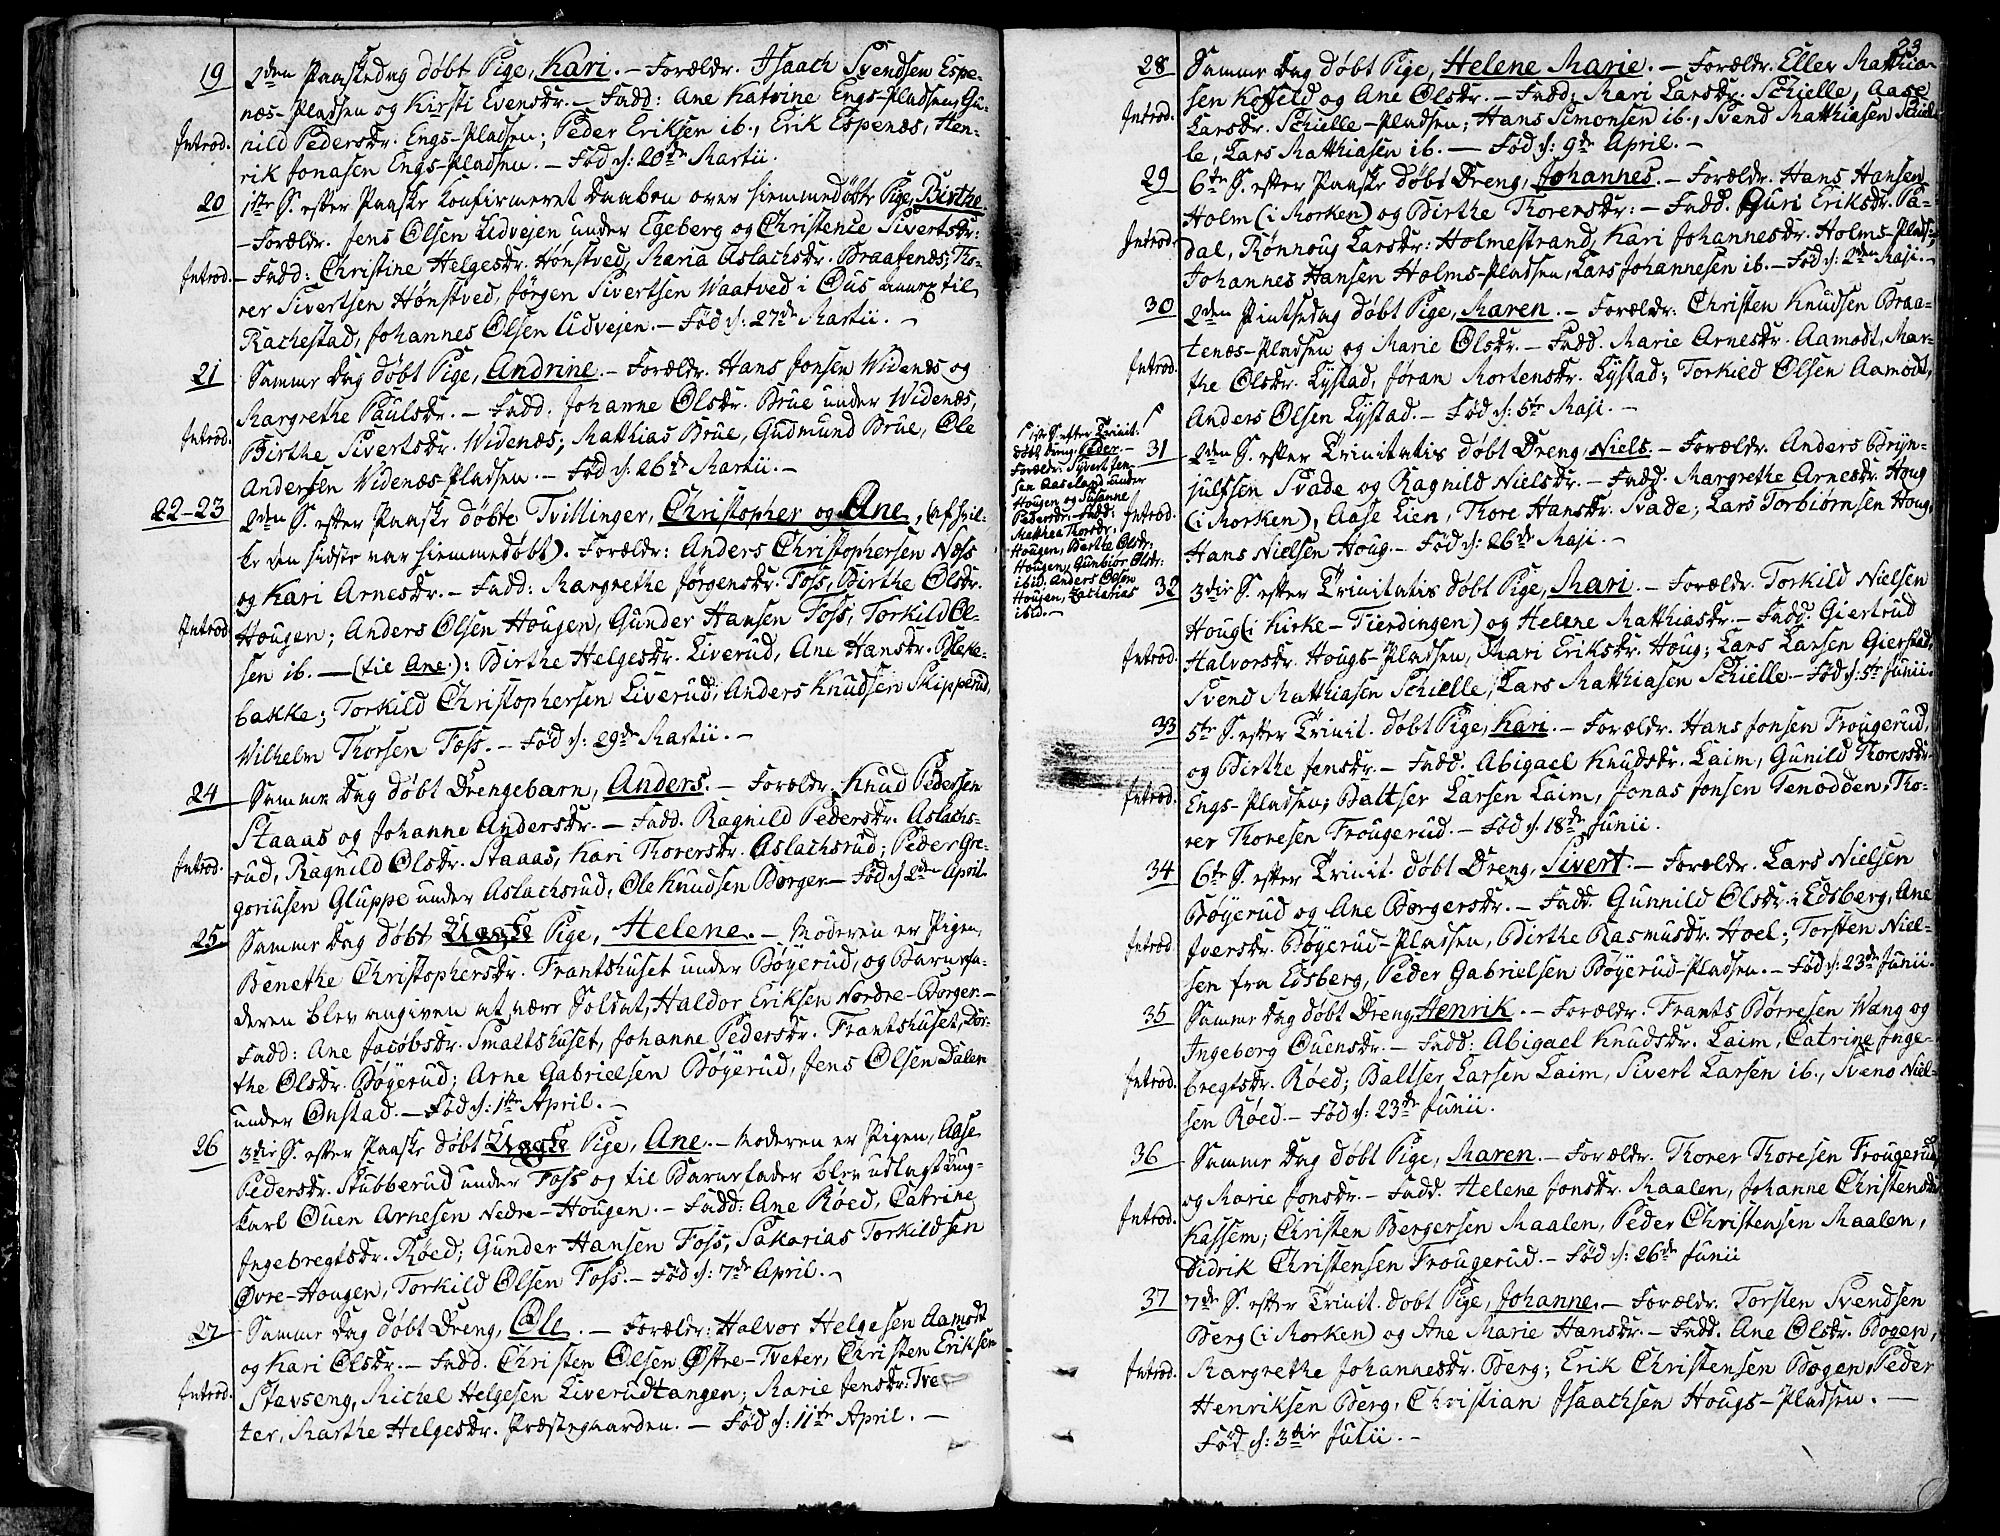 19 2den Paaskedag døbt Pige, Kari. – Forældr. Isaach Svendsen Espe-
næs-Pladsen og Kirsti Evensdr. – Fadd: Ane Katrine Engs-Pladsen, Gu-
Introd. nild Pedersdr. Engs-Pladsen; Peder Eriksen ib., Erik Espenæs, Hen-
rik Jonasen Engs-Pladsen. – Fød d: 20de Martii.
20 1ste S. efter Paaske Confirmeret Daaben over hiemmedøbte Pige, Birthe
– Forældr. Jens Olsen Udvejen under Egeberg og Christence Sivertsdr:
Introd. – Fadd: Christine Helgesdr. Hønstved, Maria Aslachsdr. Braatenæs; Tho-
rer Sivertsen Hønstved, Jørgen Sivertsen Waatved i Øus annex til
Rachestad, Johannes Olsen Udvejen. – Fød d: 27de Martii. –
21 Samme Dag døbt Pige, Andrine. – Forældr. Hans Jonsen Widenæs og
Margrethe Paulsdr. – Fadd. Johanne Olsdr. Brue under Widenæs,
Introd. Birthe Sivertsdr. Widenæs; Matthias Brue, Gudmund Brue, Ole
Andersen Widenæs-Pladsen. – Fød d: 26de Martii. –
22–23 2den S. efter Paaske døbte Tvillinger, Christopher og Ane, (af hvil-
ke den sidste var hiemmedøbt). Forældr: Anders Christophersen Næss
og Kari Arnesdr. – Fadd: Margrethe Jørgensdr. Foss, Birthe Olsdr.
Introd. Hougen; Anders Olsen Hougen, Gunder Hansen Foss, Torkild Ol-
sen ib. – (til Ane): Birthe Helgesdr. Liverud, Ane Hansdr. Bleke-
bakke; Torkild Christophersen Liverud, Anders Knudsen Skipperud,
Wilhelm Thorsen Foss. – Fød d: 29de Martii. –
24 Samme Dag døbt Drengebarn, Anders. – Forældr. Knud Pedersen
Staaas og Johanne Andersdr. – Fadd. Ragnild Pedersdr. Aslachs-
Introd. rud, Ragnild Olsdr. Staaas, Kari Thorersdr. Aslachsrud; Peder Gre-
goriusen Gluppe under Aslachsrud, Ole Knudsen Borger – Fød d 2den April
25 Samme Dag døbt Uægte Pige, Helene. – Moderen er Pigen,
Benethe Christophersdr. Frantshuset under Bøyerud, og Barnefa-
deren blev angiven at være Soldat, Haldor Eriksen Nordre-Borger –
Fadd: Ane Jacobsdr. Smaltshuset, Johanne Pedersdr. Frantshuset, Dor-
the Olsdr. Bøyerud; Arne Gabrielsen Bøyerud, Jens Olsen Dalen
under Onstad. – Fød d: 1ste April. –
26 3die S. efter Paaske døbt Uægte Pige, Ane. – Moderen er Pigen, Aase
Pedersdr. Stubberud under Foss og til Barnefader blev udlagt Ung-
karl Ouen Arnesen Nedre-Hougen. – Fadd: Ane Røed, Catrine
Ingebregtsdr. Røed; Gunder Hansen Foss, Sakarias Torkildsen
Øvre-Hougen, Torkild Olsen Foss. – Fød d: 7de April. –
27 Samme Dag døbt Dreng, Ole. – Forældr: Halvor Helgesen Aamodt
og Kari Olsdr. – Fadd. Christen Olsen Østre-Tveter, Christen Eriksen
Introd. Stavseng, Michel Helgesen Liverudtangen; Marie Jensdr: Tve-
ter, Marthe Helgesdr. Præstegaarden. – Fød d: 11te April. –
23
28 Samme Dag døbt Pige, Helene Marie. – Forældr. Eller Matthia-
sen Koffeld og Ane Olsdr. – Fadd: Mari Larsdr. Schielle, Aase
Introd. Larsdr. Schielle-Pladsen; Hans Simonsen ib., Svend Matthiasen Schiel-
le, Lars Matthiasen ib. – Fød d: 9de April. –
29 6te S. efter Paaske døbt Dreng, Johannes. – Forældr. Hans Hansen
Holm (i Morken) og Birthe Thorersdr: – Fadd. Guri Eriksdr. Pa-
Introd. dal, Rønnoug Larsdr: Holmestrand, Kari Johannesdr. Holms-Plads;
Johannes Hansen Holms-Pladsen, Lars Johannesen ib. – Fød d: 2den Maji. –
30 2den Pintsedag døbt Pige, Maren. – Forældr: Christen Knudsen Braa-
tenæs-Pladsen og Marie Olsdr. – Fadd. Marie Arnesdr. Aamodt, Mar-
Introd. the Olsdr. Lystad, Jøran Mortensdr. Lystad; Torkild Olsen Aamodt,
Anders Olsen Lystad. – Fød d: 5te Maji. –
1ste S. efter Trinit.
døbt Dreng, Peder. –
Forældr. Syvert Jen-
sen Aaseland under
Hougen og Susanne
Pedersdr. – Fadd.
Mathea Thorsdr.
Hougen, Barthe Olsdr.
Hougen, Gunbiør Olsdr:
ibid. Anders Olsen
Hougen, Zacharias
ibid. –
31 2den S. efter Trinitatis døbt Dreng, Niels. – Forældr. Anders Bryn-
julfsen Svade og Ragnild Nielsdr. – Fadd. Margrethe Arnesdr. Houg
Introd. (i Morken), Aase Lien, Thore Hansdr. Svade; Lars Torbiørnsen Houg,
Hans Nielsen Houg. – Fød d: 26de Maji. –
32 3die S. efter Trinitatis døbt Pige, Mari. – Forældr. Torkild Nielsen
Houg (i Kirke-Fierdingen) og Helene Matthiasdr. – Fadd. Giertrud
Introd. Halvorsdr. Hougs-Pladsen, Mari Eriksdr. Houg; Lars Larsen Gierstad,
Svend Matthiasen Schielle, Lars Matthiasen Schielle – Fød d: 5te Junii.
33 5te S. efter Trinit. døbt Pige, Kari. – Forældr. Hans Jonsen Frougerud,
og Birthe Jensdr. – Fadd. Abigael Knudsdr. Laim, Gunild Thorersdr.
Introd. Engs-Pladsen; Baltser Larsen Laim, Jonas Jonsen Tenodden, Tho-
rer Thoresen Frougerud. – Fød d. 18de Junii.
34 6te S. efter Trinit. døbt Dreng, Sivert. – Forældr. Lars Nielsen
Bøyerud og Ane Borgersdr. – Fadd. Gunnild Olsdr. i Edsberg, Ane
Introd Iversdr. Bøyerud-Pladsen, Birthe Rasmusdr. Hoel; Torsten Niel-
sen fra Edsberg, Peder Gabrielsen Bøyerud-Pladsen. – Fød d: 23de Junii.
35 Samme Dag døbt Dreng, Henrik. – Forældr. Frants Børresen Wang og
Ingeborg Ouensdr. – Fadd: Abigael Knudsdr. Laim, Catrine Inge-
Introd. bregtsdr. Røed; Baltser Larsen Laim, Sivert Larsen ib., Svend Niel-
sen Røed. – Fød d: 23de Junii.
36 Samme Dag døbt Pige, Maren. – Forældr. Thorer Thoresen Frougerud,
og Marie Jonsdr. – Fadd. Helene Jonsdr. Maalen, Johanne Christensdr.
Introd. Kassem; Christen Bergersen Maalen, Peder Christensen Maalen,
Didrik Christensen Frougerud. – Fød d: 26de Junii
37 7de S. efter Trinit. døbt Pige, Johanne. – Forældr. Torsten Svendsen
Berg (i Morken) og Ane Marie Hansdr. – Fadd. Ane Olsdr. Bogen,
Introd. Margrethe Johannesdr. Berg; Erik Christensen Bogen, Peder
Henriksen Berg, Christian Isaachsen Hougs-Pladsen. –
Fød d: 3die Julii. –